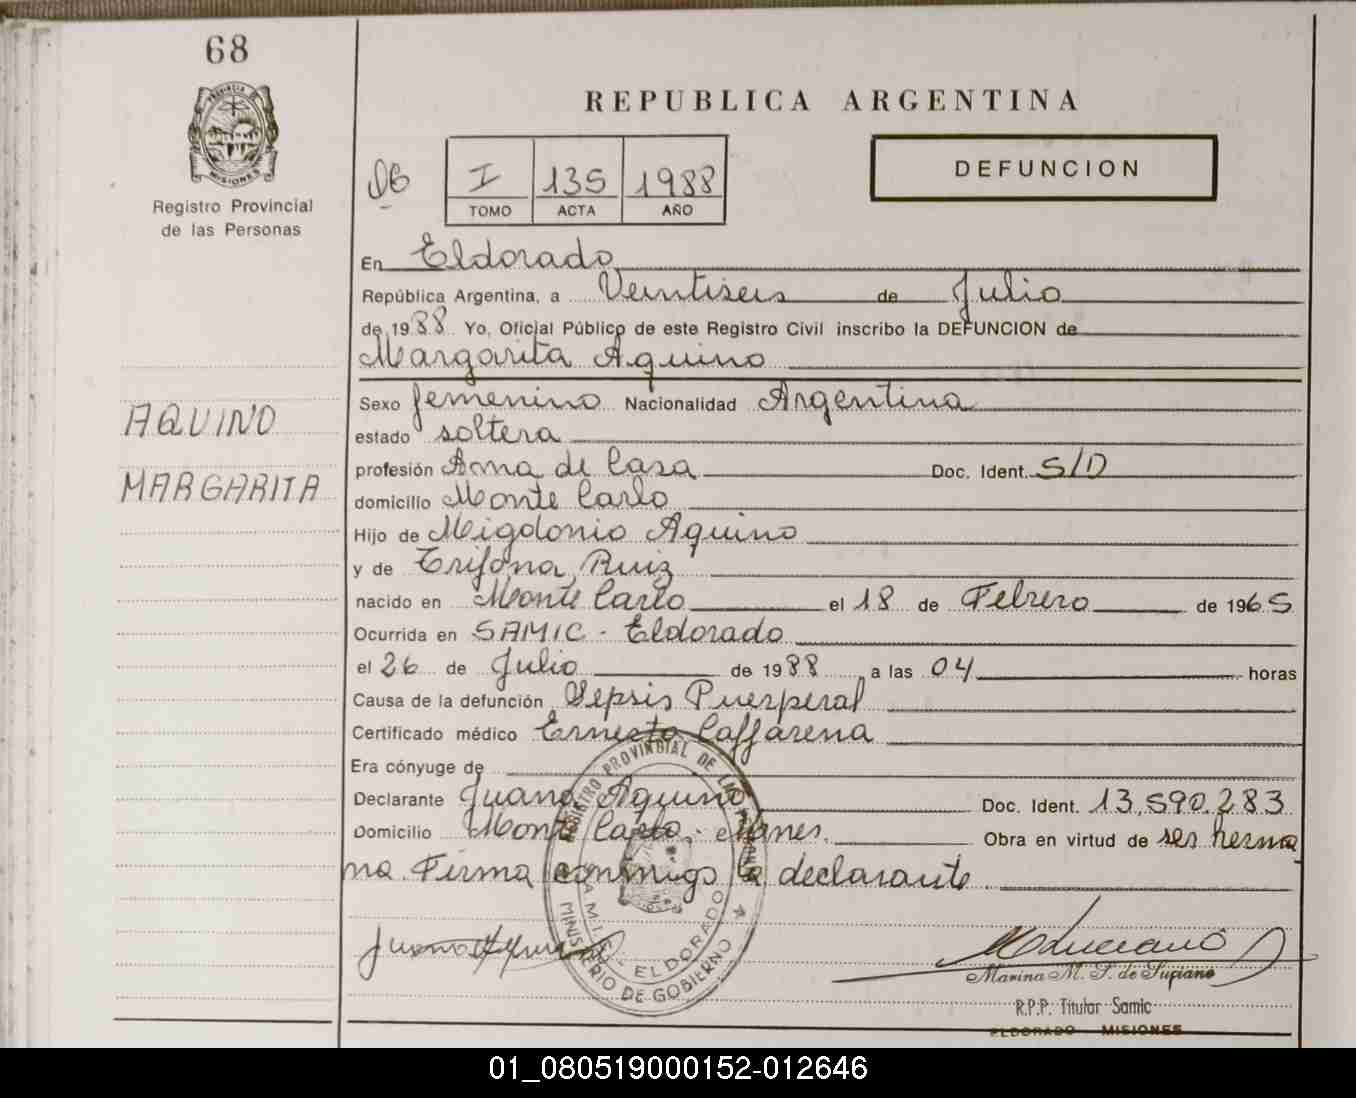 68
PROVINCIA DE
MISIONES
Registro Provincial
de las Personas
AQUINO
MARGARITA
REPUBLICA ARGENTINA
DEFUNCION
I 135 1988
TOMO ACTA AÑO
En Eldorado
República Argentina, a Veintiseis de Julio
de 1988 Yo, Oficial Público de este Registro Civil inscribo la DEFUNCION de
Margarita Aquino
Sexo femenino Nacionalidad Argentina
estado soltera
profesión Ama de Casa Doc. Ident. S/D
domicilio Monte Carlo
Hijo de Migdonio Aquino
y de Trifona Ruiz
nacido en Monte Carlo el 18 de Febrero de 1965
Ocurrida en SAMIC - Eldorado
el 26 de Julio de 1988 a las 04 horas
Causa de la defunción Sepsis Puerperal
Certificado médico Ernesto Caffarena
Era cónyuge de
Declarante Juana Aquino Doc. Ident. 13.590.283
Domicilio Monte Carlo - Mnes. Obra en virtud de ser herma
na. Firma conmigo la declarante
REGISTRO PROVINCIAL DE LAS PERSONAS
S.A.M.I.C. - ELDORADO
MINISTERIO DE GOBIERNO
Juana Aquino
Marina M. S. de Supiano
R.P.P. Titular Samic
ELDORADO MISIONES
01_080519000152-012646